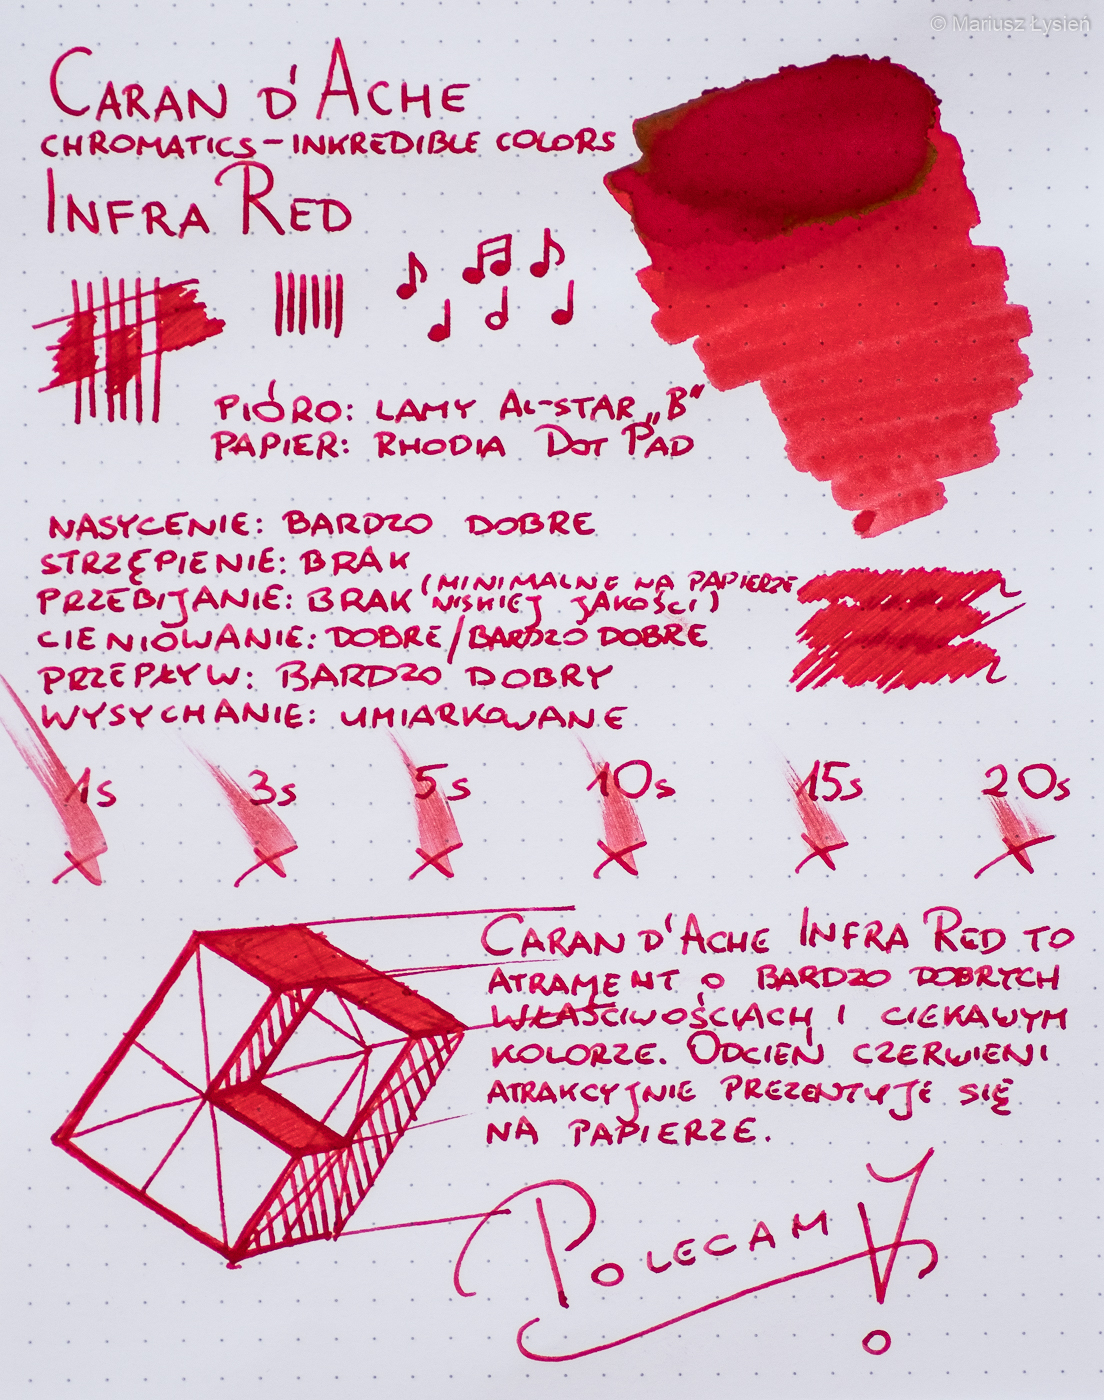 © Mariusz Łysień
CARAN D'ACHE
CHROMATICS-INKREDIBLE COLORS
INFRA RED
PIÓRO: LAMY AL-STAR „B"
PAPIER: RHODIA DOT PAD
NASYCENIE: BARDZO DOBRE
STRZĘPIENIE: BRAK
PRZEBIJANIE: BRAK (MINIMALNE NA PAPIERZE
NISKIEJ JAKOŚCI)
CIENIOWANIE: DOBRE/BARDZO DOBRE
PRZEPŁYW: BARDZO DOBRY
WYSYCHANIE: UMIARKOWANE
1s 3s 5s 10s 15s 20s
CARAN D'ACHE INFRA RED TO
ATRAMENT O BARDZO DOBRYCH
WŁAŚCIWOŚCIACH I CIEKAWYM
KOLORZE. ODCIEŃ CZERWIENI
ATRAKCYJNIE PREZENTUJE SIĘ
NA PAPIERZE.
POLECAM!